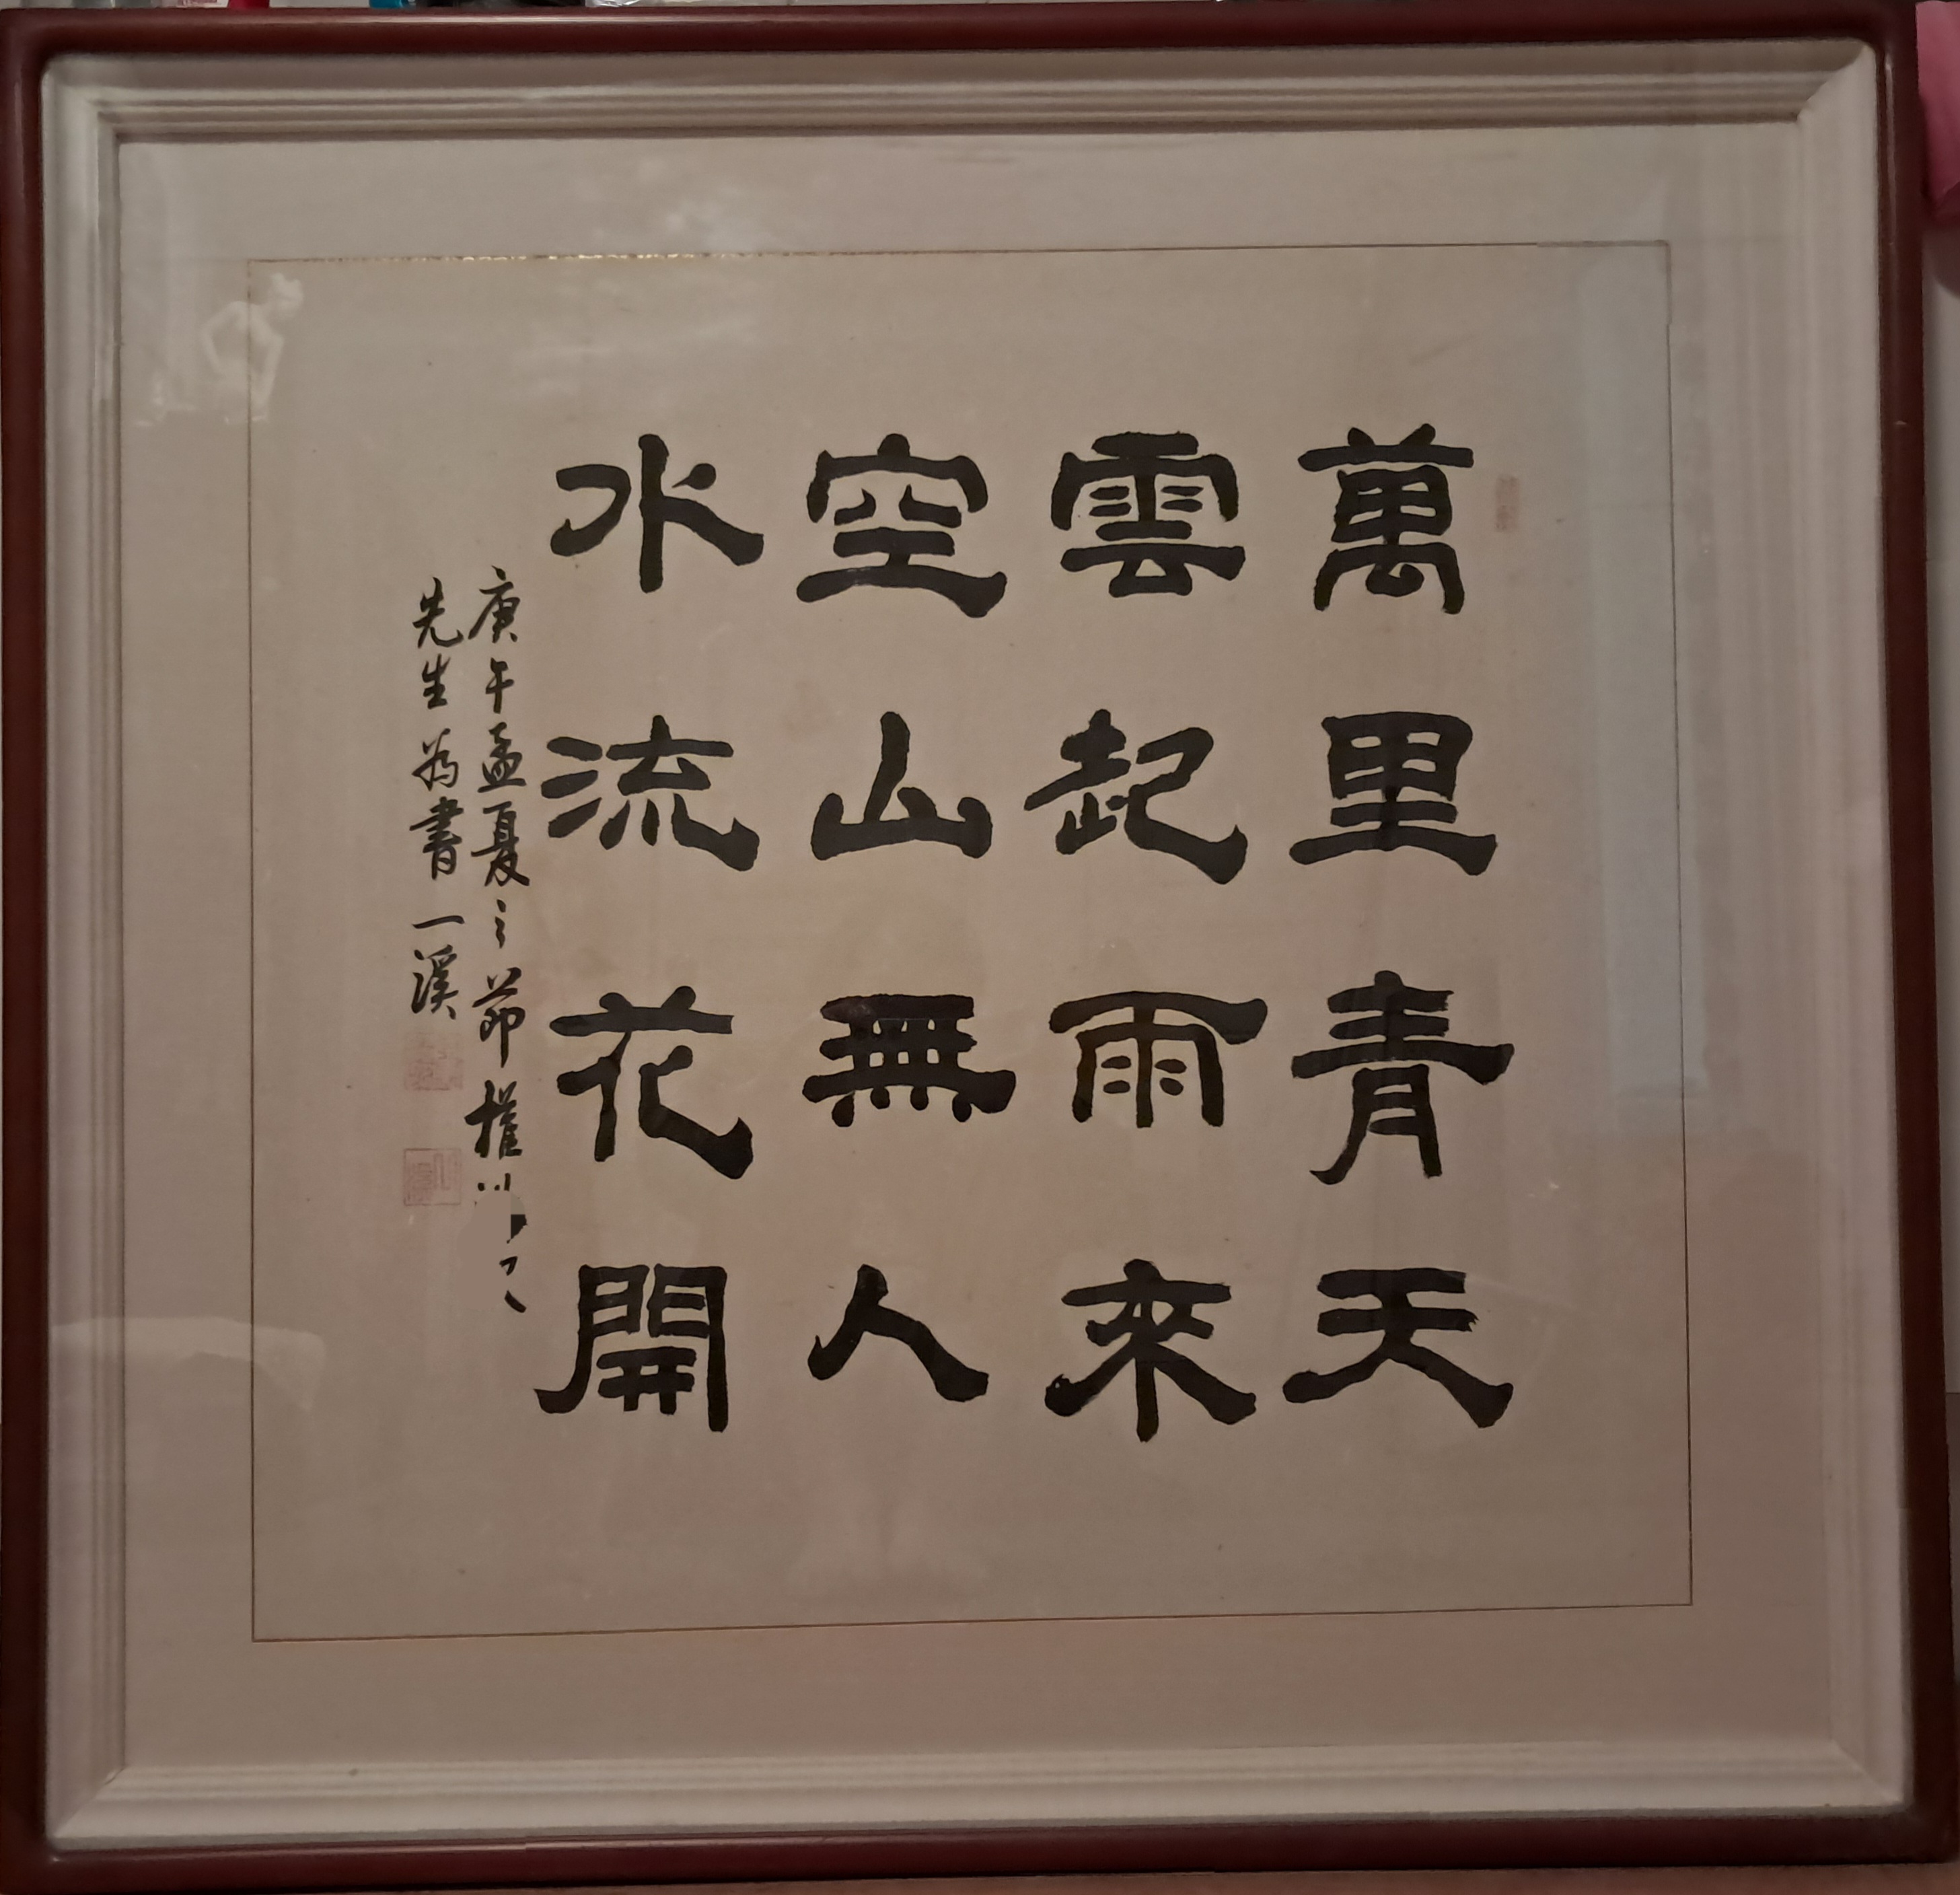 萬里青天
雲起雨來
空山無人
水流花開
庚午孟夏之節權
先生為書 一溪